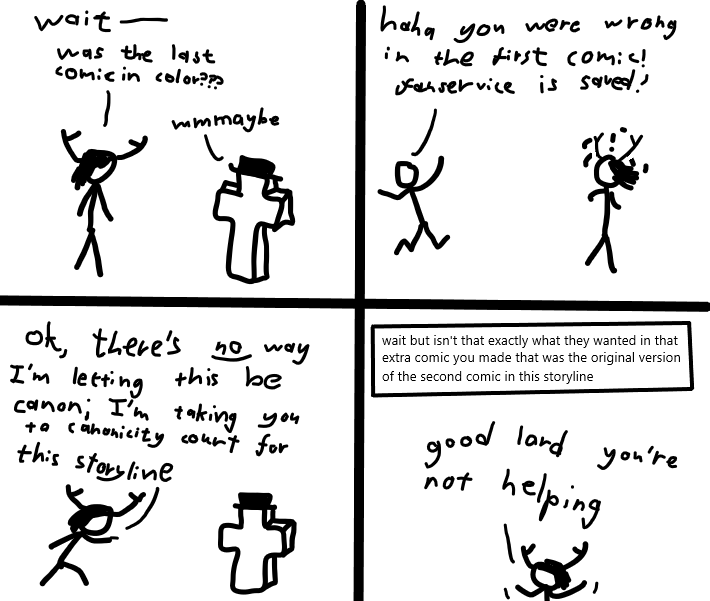 wait —
was the last
comic in color???
mmmaybe
haha you were wrong
in the first comic!
fanservice is saved!
ok, there's no way
I'm letting this be
canon; I'm taking you
to canonicity court for
this storyline
wait but isn't that exactly what they wanted in that
extra comic you made that was the original version
of the second comic in this storyline
good lard you're
not helping